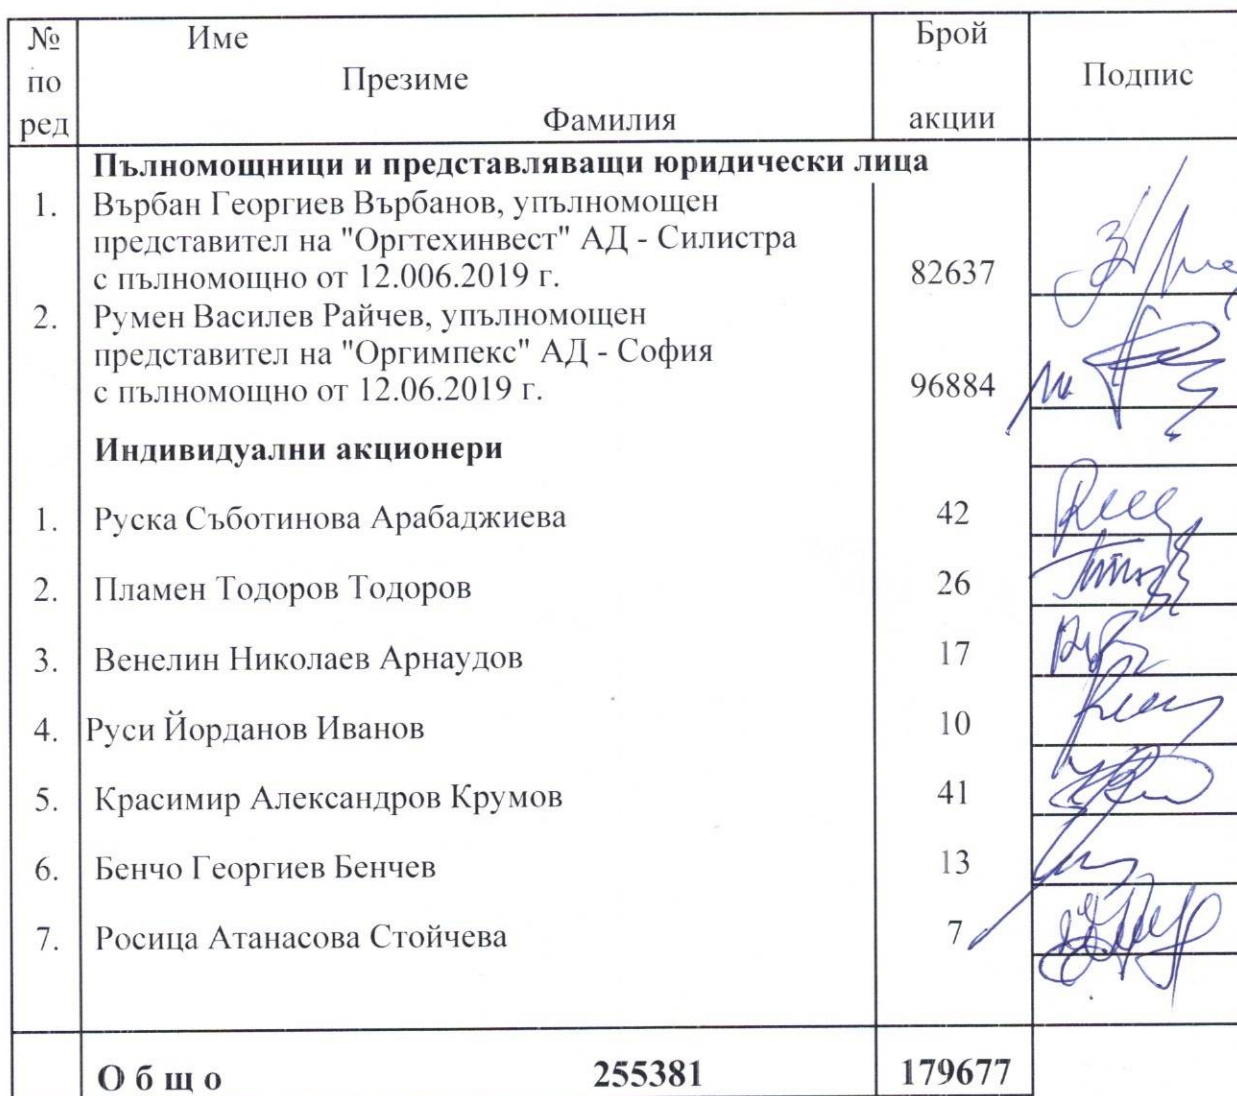 № Име Брой
по Презиме Подпис
ред Фамилия акции
Пълномощници и представляващи юридически лица
1. Върбан Георгиев Върбанов, упълномощен
представител на "Оргтехинвест" АД - Силистра
с пълномощно от 12.006.2019 г. 82637
2. Румен Василев Райчев, упълномощен
представител на "Оргимпекс" АД - София
с пълномощно от 12.06.2019 г. 96884
Индивидуални акционери
1. Руска Съботинова Арабаджиева 42
2. Пламен Тодоров Тодоров 26
3. Венелин Николаев Арнаудов 17
4. Руси Йорданов Иванов 10
5. Красимир Александров Крумов 41
6. Бенчо Георгиев Бенчев 13
7. Росица Атанасова Стойчева 7
О б щ о 255381 179677